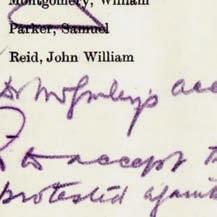 Montgomery, William
Parker, Samuel
Reid, John William
Dr McGinley's acc
to accept t
protested again